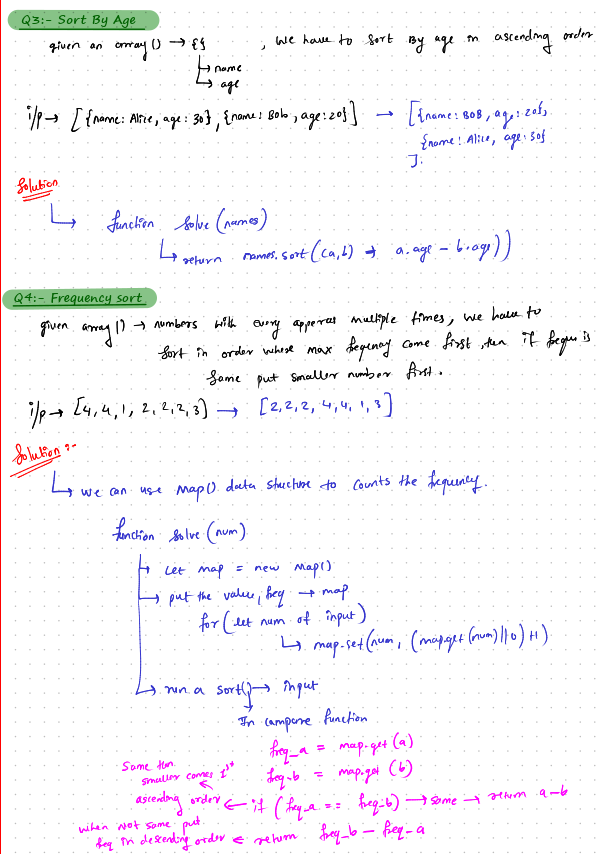 Q3:- Sort By Age
given an array() → {} , we have to sort By age in ascending order
↳ name
↳ age
i/p → [{name: Alice, age: 30}, {name: Bob, age: 20}] → [{name: BOB, age: 20},
{name: Alice, age: 30}
];
Solution
↳ function solve (names)
↳ return names.sort((a,b) → a.age - b.age))
Q4:- Frequency sort
given array() → numbers with every apperas multiple times, we have to
sort in order whose max freqency come first, ten if freqn is
same put smaller number first.
i/p → [4,4,1,2,2,2,3] → [2,2,2,4,4,1,3]
Solution :-
↳ we can use Map() data structure to counts the frequency.
function solve (num)
↳ Let map = new Map()
↳ put the value, freq → map
for (let num of input)
↳ map.set(num, (map.get(num)||0)+1)
↳ run a sort() → input
In compare function
freq_a = map.get(a)
freq_b = map.get(b)
Same ten
smaller comes 1st
ascending order ← if (freq_a == freq_b) → same → return a-b
when not same put
freq in descending order ← return freq_b - freq_a